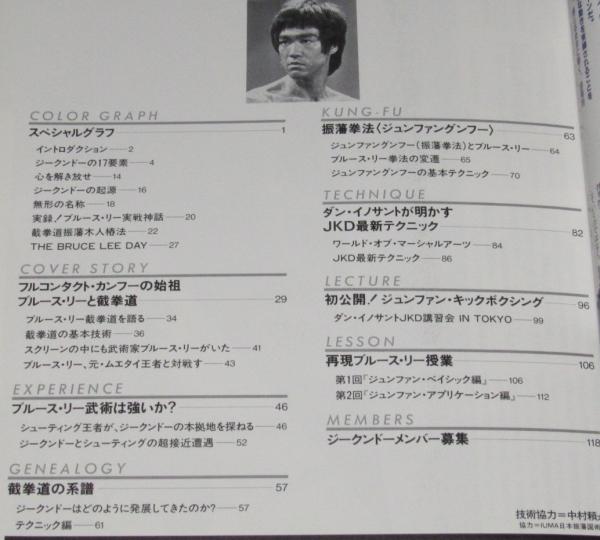 COLOR GRAPH
スペシャルグラフ 1
イントロダクション 2
ジークンドーの17要素 4
心を解き放せ 14
ジークンドーの起源 16
無形の名称 18
実録!ブルース・リー実戦神話 20
截拳道振藩木人樁法 22
THE BRUCE LEE DAY 27
COVER STORY
フルコンタクト・カンフーの始祖
ブルース・リーと截拳道 29
ブルース・リー截拳道を語る 34
截拳道の基本技術 36
スクリーンの中にも武術家ブルース・リーがいた 41
ブルース・リー、元・ムエタイ王者と対戦す 43
EXPERIENCE
ブルース・リー武術は強いか? 46
シューティング王者が、ジークンドーの本拠地を探ねる 46
ジークンドーとシューティングの超接近遭遇 52
GENEALOGY
截拳道の系譜 57
ジークンドーはどのように発展してきたのか? 57
テクニック編 61
KUNG-FU
振藩拳法〈ジュンファングンフー〉 63
ジュンファングンフー(振藩拳法)とブルース・リー 64
ブルース・リー拳法の変遷 65
ジュンファングンフーの基本テクニック 70
TECHNIQUE
ダン・イノサントが明かす
JKD最新テクニック 82
ワールド・オブ・マーシャルアーツ 84
JKD最新テクニック 86
LECTURE
初公開!ジュンファン・キックボクシング 96
ダン・イノサントJKD講習会 IN TOKYO 99
LESSON
再現ブルース・リー授業 106
第1回『ジュンファン・ベイシック編』 106
第2回『ジュンファン・アプリケーション編』 112
MEMBERS
ジークンドーメンバー募集 118
技術協力=中村頼
協力=IUMA日本振藩国術